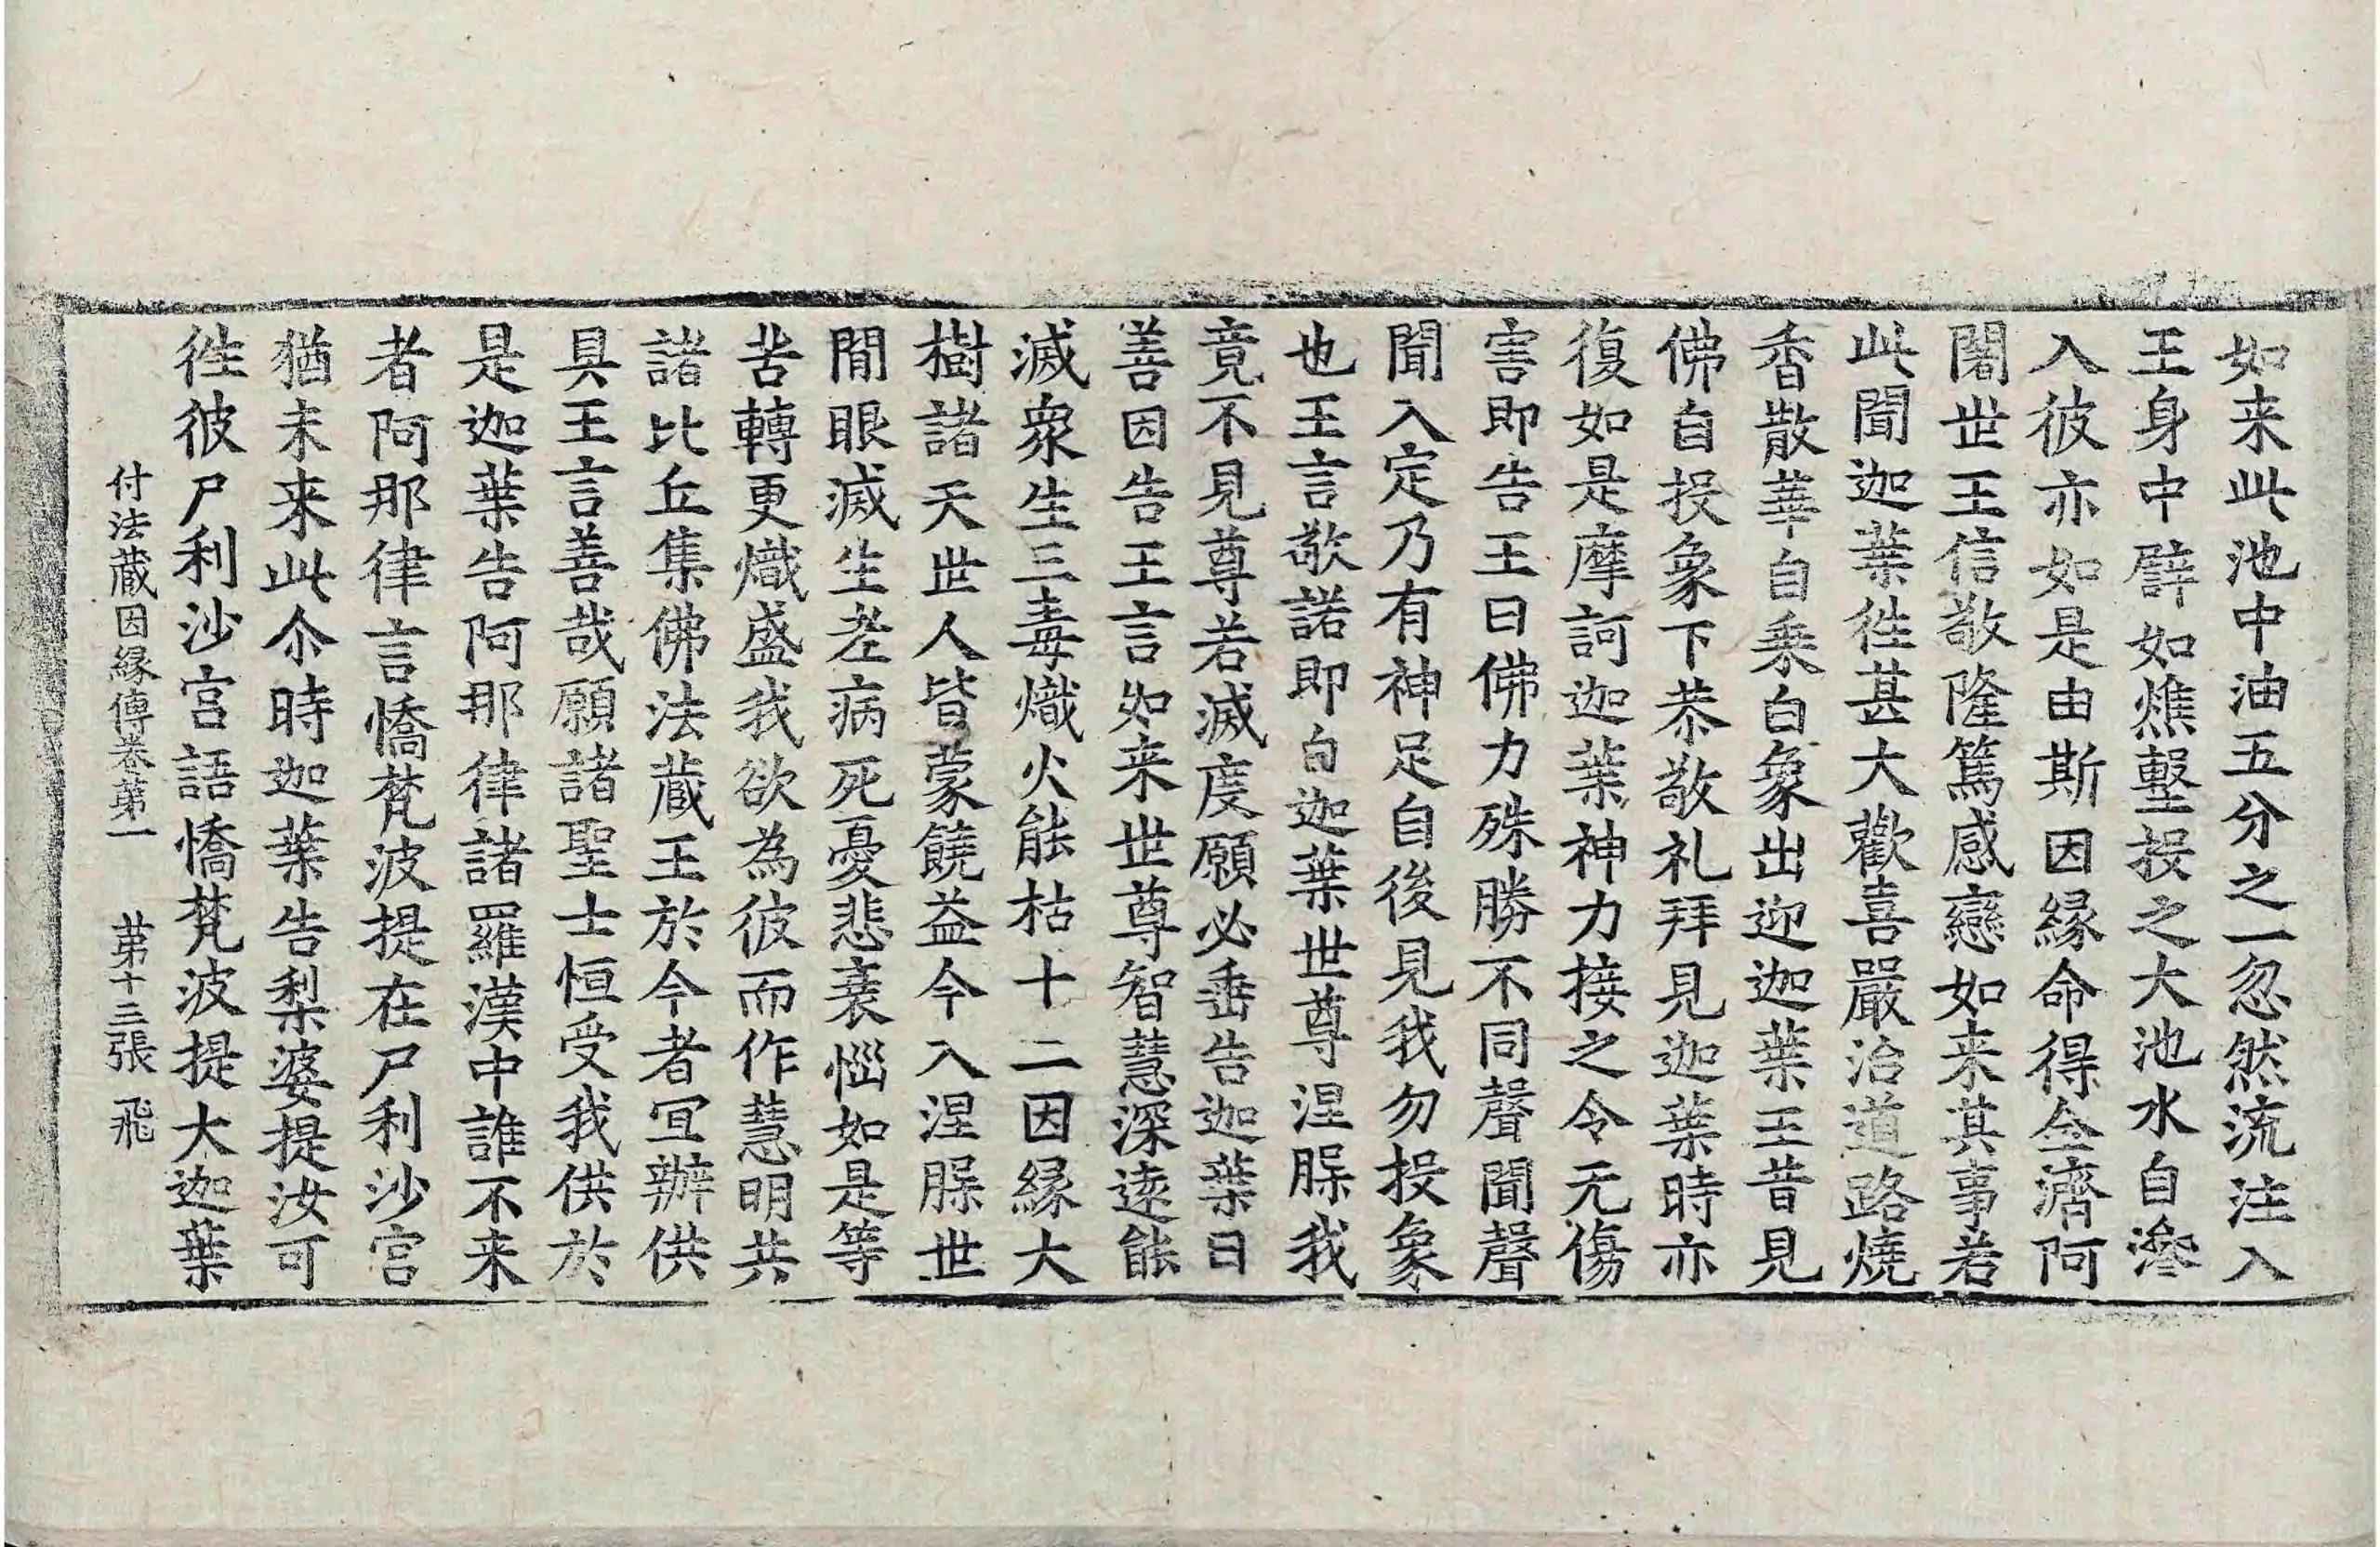 如来此池中油五分之一忽然流注入
王身中譬如燋墼投之大池水自滲
入彼亦如是由斯因縁命得全濟阿
闍世王信敬隆篤感戀如来其事若
此聞迦葉徃甚大歡喜嚴治道路燒
香散華自乗白象出迎迦葉王昔見
佛自投象下恭敬礼拜見迦葉時亦
復如是摩訶迦葉神力接之令无傷
害即告王曰佛力殊勝不同聲聞聲
聞入定乃有神足自後見我勿投象
也王言敬諾即白迦葉世尊涅槃我
竟不見尊若滅度願必垂告迦葉曰
善因告王言如来世尊智慧深逺能
滅衆生三毒熾火能枯十二因縁大
樹諸天世人皆蒙饒益今入涅槃世
間眼滅生老病死憂悲衰惱如是等
苦轉更熾盛我欲為彼而作慧明共
諸比丘集佛法蔵王於今者宜辦供
具王言善哉願諸聖士恒受我供於
是迦葉告阿那律諸羅漢中誰不来
者阿那律言憍梵波提在尸利沙宫
猶未来此尒時迦葉告梨婆提汝可
徃彼尸利沙宫語憍梵波提大迦葉
付法蔵因縁傳卷第一 第十三張 飛